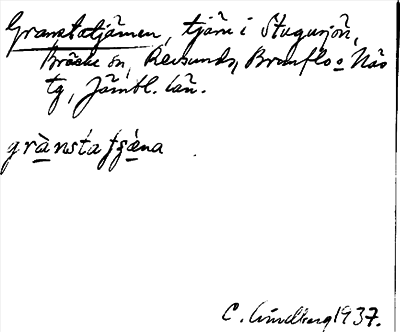 Granstatjärnen, tjärn i Stugusjön,
Bräcke sn, Revsunds, Brunflo o Näs
tg, Jämtl. län.
grànstafɕæ̀na
C. Lindberg 1937.